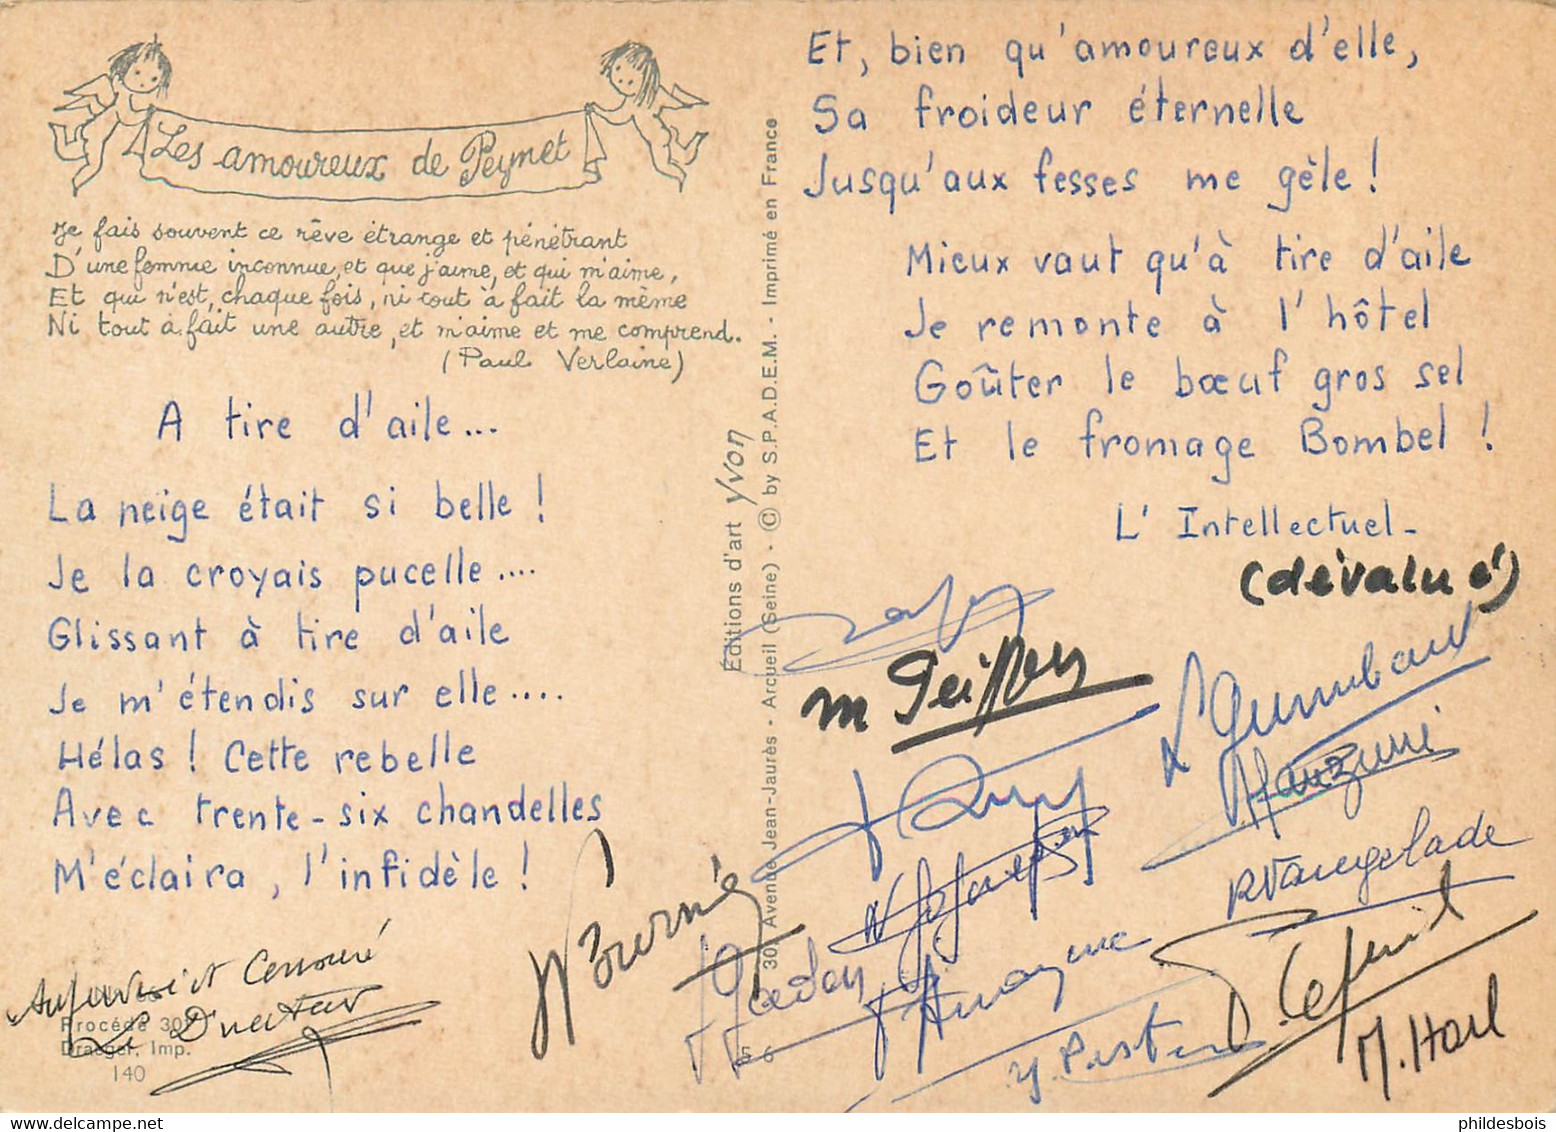 Les amoureux de Peynet
Je fais souvent ce rêve étrange et pénétrant
D'une femme inconnue, et que j'aime, et qui m'aime,
Et qui n'est, chaque fois, ni tout à fait la même
Ni tout à fait une autre, et m'aime et me comprend.
(Paul Verlaine)
A tire d'aile...
La neige était si belle !
Je la croyais pucelle....
Glissant à tire d'aile
Je m'étendis sur elle....
Hélas ! Cette rebelle
Avec trente-six chandelles
M'éclaira, l'infidèle !
Censuré
Le Directeur
Procédé 305
Draeger, Imp.
140
Éditions d'art Yvon
30, Avenue Jean-Jaurès - Arcueil (Seine) - © by S.P.A.D.E.M. - Imprimé en France
56
Et, bien qu'amoureux d'elle,
Sa froideur éternelle
Jusqu'aux fesses me gèle !
Mieux vaut qu'à tire d'aile
Je remonte à l'hôtel
Goûter le bœuf gros sel
Et le fromage Bombel !
L'Intellectuel-
(dévalué)
M. Horl
phildesbois